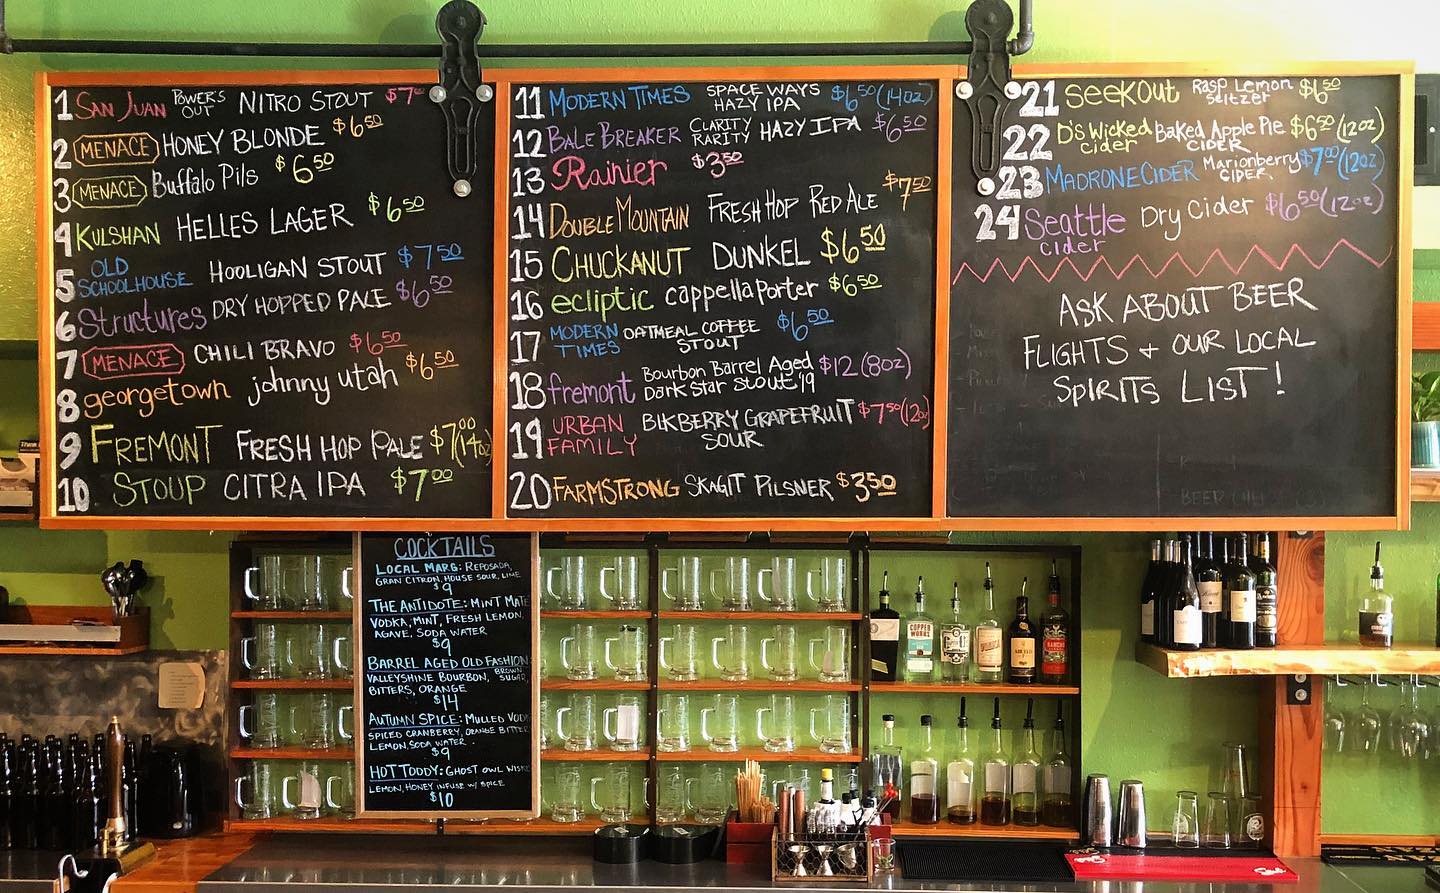 1 San Juan Power's Out Nitro Stout $7
2 MENACE Honey Blonde $6.50
3 MENACE Buffalo Pils $6.50
4 Kulshan Helles Lager $6.50
5 Old Schoolhouse Hooligan Stout $7.50
6 Structures Dry Hopped Pale $6.50
7 MENACE Chili Bravo $6.50
8 georgetown johnny utah $6.50
9 Fremont Fresh Hop Pale $7.00 (14oz)
10 Stoup Citra IPA $7.00
11 Modern Times Space Ways Hazy IPA $6.50 (14oz)
12 Bale Breaker Clarity Rarity Hazy IPA $6.50
13 Rainier $3.50
14 Double Mountain Fresh Hop Red Ale $7.50
15 Chuckanut Dunkel $6.50
16 ecliptic cappella Porter $6.50
17 Modern Times Oatmeal Coffee Stout $6.50
18 fremont Bourbon Barrel Aged Dark Star Stout '19 $12 (8oz)
19 Urban Family Blkberry Grapefruit Sour $7.50 (12oz)
20 Farmstrong Skagit Pilsner $3.50
21 Seekout Rasp Lemon Seltzer $6.50
22 D's Wicked Cider Baked Apple Pie Cider $6.50 (12oz)
23 Madrone Cider Marionberry Cider $7.00 (12oz)
24 Seattle Cider Dry Cider $6.50 (12oz)
Ask About Beer
Flights + Our Local
Spirits List!
COCKTAILS
Local Marg: Reposada,
Gran Citron, House Sour, Lime
$9
The Antidote: Mint Mate
Vodka, Mint, Fresh Lemon
Agave, Soda Water
$9
Barrel Aged Old Fashion
Valleyshine Bourbon, Brown Sugar,
Bitters, Orange
$14
Autumn Spice: Mulled Vod
Spiced Cranberry, Orange Bitter
Lemon, Soda Water
$9
Hot Toddy: Ghost Owl Wisk
Lemon, Honey Infuse w/ Spice
$10
COPPER WORKS